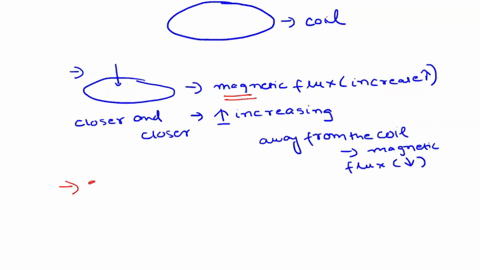 → coil
→ → magnetic flux (increase ↑)
closer and closer → ↑ increasing
away from the coil
→ magnetic
flux (↓)
→